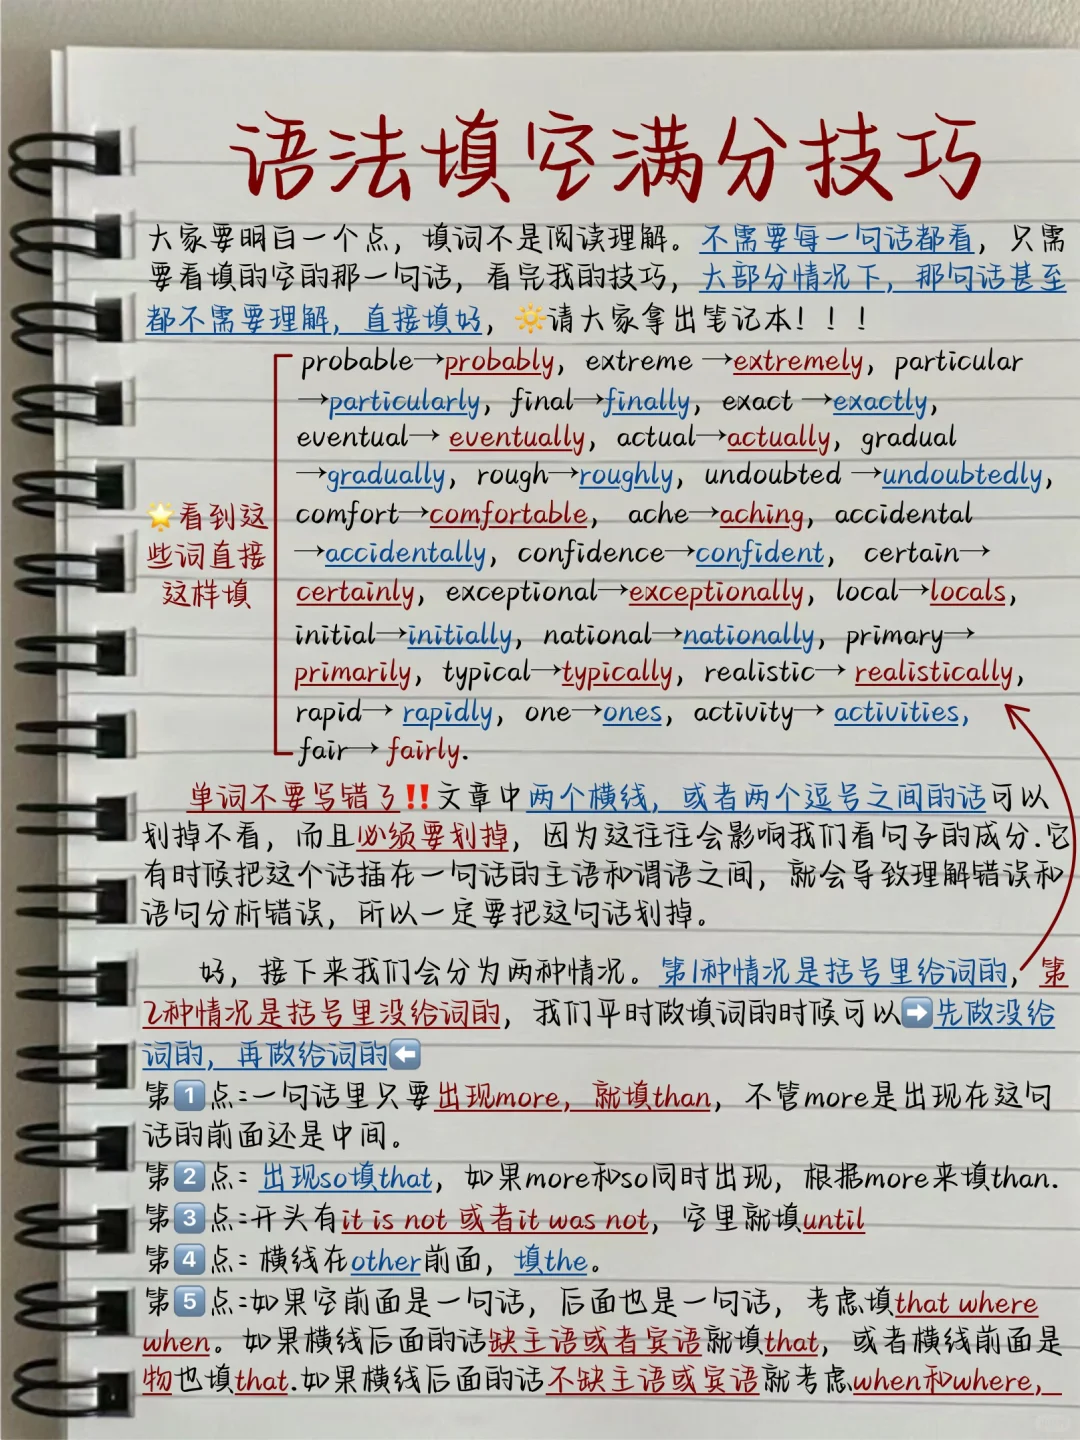 语法填空满分技巧
大家要明白一个点，填词不是阅读理解。不需要每一句话都看，只需
要看填的空的那一句话，看完我的技巧，大部分情况下，那句话甚至
都不需要理解，直接填好，🌟请大家拿出笔记本！！！
probable→probably, extreme →extremely, particular
→particularly, final→finally, exact →exactly,
eventual→ eventually, actual→actually, gradual
→gradually, rough→roughly, undoubted →undoubtedly,
🌟看到这
些词直接
这样填
comfort→comfortable, ache→aching, accidental
→accidentally, confidence→confident, certain→
certainly, exceptional→exceptionally, local→locals,
initial→initially, national→nationally, primary→
primarily, typical→typically, realistic→ realistically,
rapid→ rapidly, one→ones, activity→ activities,
fair→ fairly.
单词不要写错了‼️文章中两个横线，或者两个逗号之间的话可以
划掉不看，而且必须要划掉，因为这往往会影响我们看句子的成分.它
有时候把这个话插在一句话的主语和谓语之间，就会导致理解错误和
语句分析错误，所以一定要把这句话划掉。
好，接下来我们会分为两种情况。第1种情况是括号里给词的，第
2种情况是括号里没给词的，我们平时做填词的时候可以➡️先做没给
词的，再做给词的⬅️
第1️⃣点:一句话里只要出现more，就填than，不管more是出现在这句
话的前面还是中间。
第2️⃣点: 出现so填that，如果more和so同时出现，根据more来填than.
第3️⃣点:开头有it is not 或者it was not，空里就填until
第4️⃣点: 横线在other前面，填the。
第5️⃣点:如果空前面是一句话，后面也是一句话，考虑填that where
when。如果横线后面的话缺主语或者宾语就填that，或者横线前面是
物也填that.如果横线后面的话不缺主语或宾语就考虑when和where，